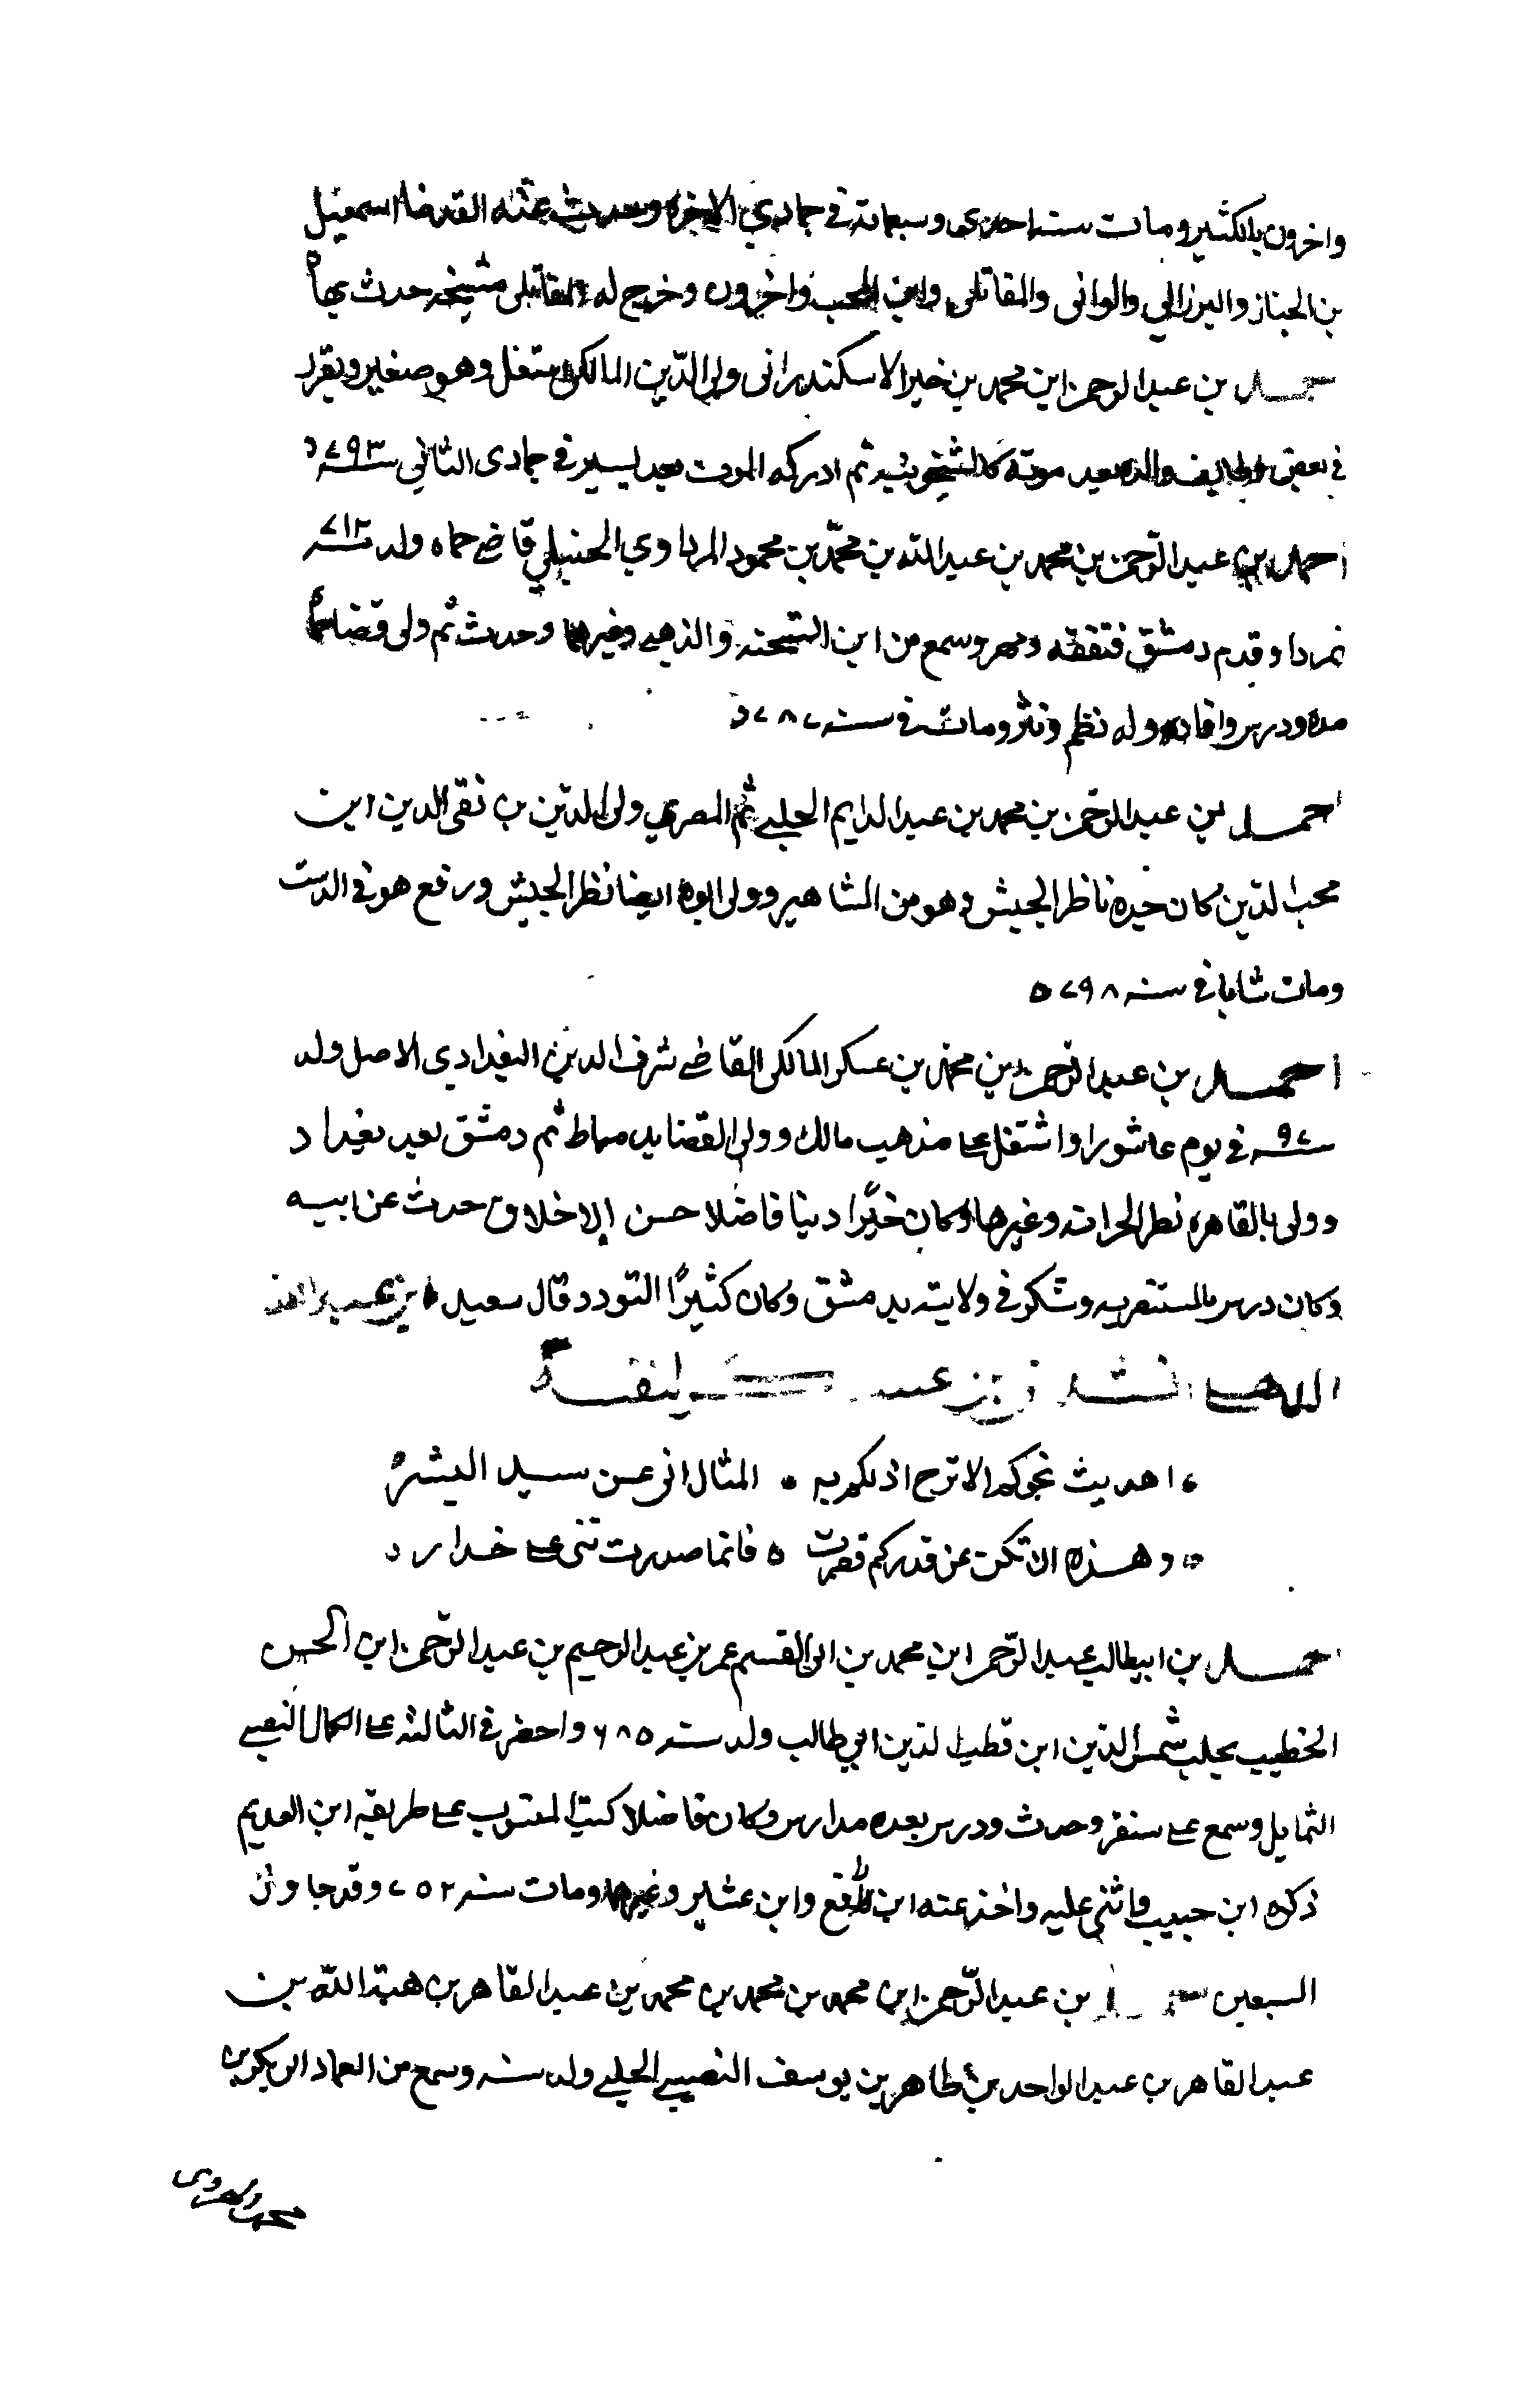 واخرون بالكثير ومات سنة احدى وسبعمائة في جمادي الاخرة وحدث عنه القدما اسمعيل
بن الخباز والبرزالي والواني والمقاتلي وابن المحب واخرون وخرج له المقاتلي مشيخه حدث بها
احمد بن عبد الرحمن ابن محمد بن خير الاسكندراني ولي الدين المالكي اشتغل وهو صغير وتقرر
في بعض وظايف والده بعد موته كالشيخونيه ثم ادركه الموت بعد يسير في جمادى الثاني سنه ٧٩٣
احمد بن عبد الرحمن بن محمد بن عبد الله بن محمد بن محمود المرداوي الحنبلي قاضي حماه ولد سنه ٧١٢
بمردا وقدم دمشق فتفقه ومهر وسمع من ابن الشحنه والذهبي وغيرهما وحدث ثم ولى قضا حماه
مده ودرس وافاد وله نظم ونثر ومات في سنه ٧٨٧
احمد بن عبد الرحمن بن محمد بن عبد الدايم الحلبي ثم المصري ولى الدين بن تقي الدين ابن
محب الدين كان جده ناظر الجيش وهو من المشاهير وولى ابوه ايضا نظر الجيش ووقع هو في الدست
ومات شابا في سنه ٧٩٨
احمد بن عبد الرحمن بن محمد بن عسكر المالكي القاضي شرف الدين البغدادي الاصل ولد
سنه ٩٧ في يوم عاشورا واشتغل على مذهب مالك وولي القضا بدمياط ثم دمشق بعد بغداد
وولى بالقاهره نظر الخزانه وغيرها وكان خيّرا دينا فاضلا حسن الاخلاق حدث عن ابيه
وكان درس بالمستنصريه وشكر في ولايته بدمشق وكان كثيرًا التودد وقال سعيد ابن عبد الله
الدهلي انشدني ابن عسكر لنفسه
اهديت نحوكم الاترج اذ لكم به المثال اتى عن سيد البشر
وهذه ان تكن عن قدركم قصرت فانما صدرت تثنى على
احمد بن ابي طالب عبد الرحمن ابن محمد بن ابي القسم عمر بن عبد الرحيم بن عبد الرحمن ابن الحسن
الخطيب بحلب شمس الدين ابن قطب الدين ابي طالب ولد سنه ٦٨٥ واحضر في الثالثة على الكمال النصيبي
الشمايل وسمع على سنقر وحدث ودرس بعده مدارس وكان فاضلا كتب المنسوب على طريقه ابن العديم
ذكره ابن حبيب واثنى عليه واخذ عنه ابن رافع وابن عشاير وغيرهما ومات سنه ٧٥٢ وقد جاوز
السبعين احمد بن عبد الرحمن ابن محمد بن محمد بن محمد بن عبد القاهر بن هبة الله بن
عبد القاهر بن عبد الواحد بن طاهر بن يوسف النصيبي الحلبي ولد سنه وسمع من العماد ابي بكر بن